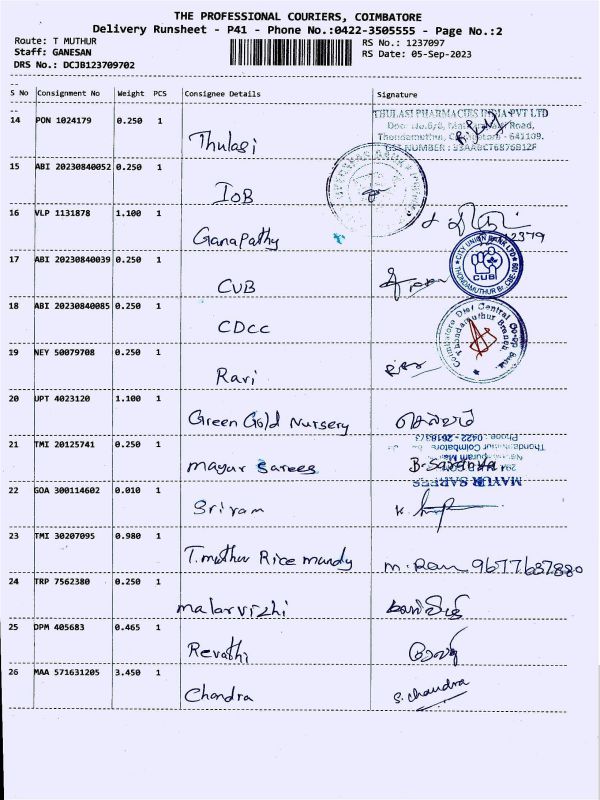 THE PROFESSIONAL COURIERS, COIMBATORE
Delivery Runsheet - P41 - Phone No.:0422-3505555 - Page No.:2
Route: T MUTHUR RS No.: 1237097
Staff: GANESAN RS Date: 05-Sep-2023
DRS No.: DCJB123709702
S No Consignment No Weight PCS Consignee Details Signature
14 PON 1024179 0.250 1 Thulasi
THULASI PHARMACIES INDIA PVT LTD
Road,
Thondamuthur, Coimbatore - 641109.
GST NUMBER : 33AABCT6876B12F
15 ABI 20230840052 0.250 1 IOB
OVERSEAS BANK
16 VLP 1131878 1.100 1 Ganapathy
12379
17 ABI 20230840039 0.250 1 CUB
CITY UNION BANK LTD
CUB
THONDAMUTHUR Br. CBE-109
18 ABI 20230840085 0.250 1 CDCC
Coimbatore Dist Central Co-op Bank
Thondamuthur Branch
19 NEY 50079708 0.250 1 Ravi
20 UPT 4023120 1.100 1 Green Gold Nursery செல்வம்
21 TMI 20125741 0.250 1 mayur Sarees B-Saranya
MAYUR SAREES
Thondamuthur Coimbatore
Phone: 0422 - 2618373
22 GOA 300114602 0.010 1 Sriram
23 TMI 30207095 0.980 1 T.muthur Rice mundy m. Ram 9677637880
24 TRP 7562380 0.250 1 malarvizhi
25 DPM 405683 0.465 1 Revathi
26 MAA 571631205 3.450 1 Chandra S. Chandra